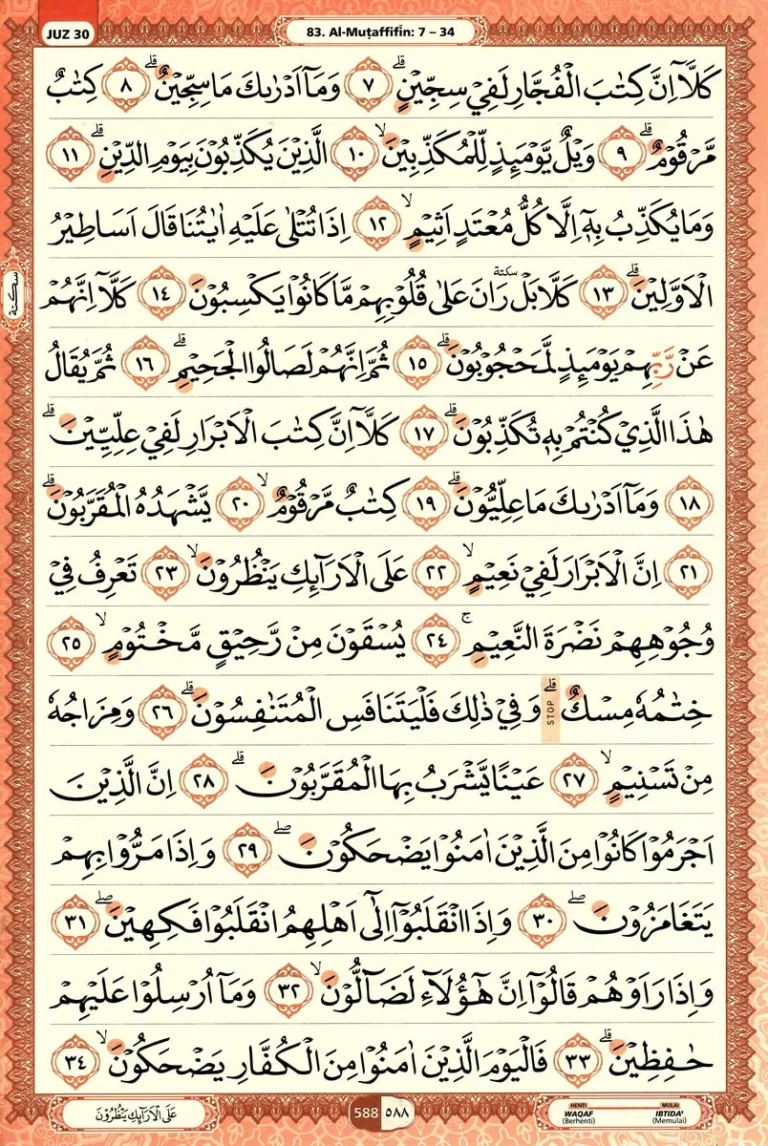 JUZ 30
83. Al-Muṭaffifīn: 7 – 34
كَلَّآ اِنَّ كِتٰبَ الْفُجَّارِ لَفِيْ سِجِّيْنٍۗ ٧ وَمَآ اَدْرٰىكَ مَا سِجِّيْنٌۗ ٨ كِتٰبٌ
مَّرْقُوْمٌۗ ٩ وَيْلٌ يَّوْمَىِٕذٍ لِّلْمُكَذِّبِيْنَۙ ١٠ الَّذِيْنَ يُكَذِّبُوْنَ بِيَوْمِ الدِّيْنِۗ ١١
وَمَا يُكَذِّبُ بِهٖٓ اِلَّا كُلُّ مُعْتَدٍ اَثِيْمٍۙ ١٢ اِذَا تُتْلٰى عَلَيْهِ اٰيٰتُنَا قَالَ اَسَاطِيْرُ
الْاَوَّلِيْنَۗ ١٣ كَلَّا بَلْ سكتة رَانَ عَلٰى قُلُوْبِهِمْ مَّا كَانُوْا يَكْسِبُوْنَ ١٤ كَلَّآ اِنَّهُمْ
سكتة
عَنْ رَّبِّهِمْ يَوْمَىِٕذٍ لَّمَحْجُوْبُوْنَۗ ١٥ ثُمَّ اِنَّهُمْ لَصَالُوا الْجَحِيْمِۗ ١٦ ثُمَّ يُقَالُ
هٰذَا الَّذِيْ كُنْتُمْ بِهٖ تُكَذِّبُوْنَۗ ١٧ كَلَّآ اِنَّ كِتٰبَ الْاَبْرَارِ لَفِيْ عِلِّيِّيْنَۗ
١٨ وَمَآ اَدْرٰىكَ مَا عِلِّيُّوْنَۗ ١٩ كِتٰبٌ مَّرْقُوْمٌۙ ٢٠ يَّشْهَدُهُ الْمُقَرَّبُوْنَۗ
٢١ اِنَّ الْاَبْرَارَ لَفِيْ نَعِيْمٍۙ ٢٢ عَلَى الْاَرَاۤىِٕكِ يَنْظُرُوْنَۙ ٢٣ تَعْرِفُ فِيْ
وُجُوْهِهِمْ نَضْرَةَ النَّعِيْمِۚ ٢٤ يُسْقَوْنَ مِنْ رَّحِيْقٍ مَّخْتُوْمٍۙ ٢٥
خِتٰمُهٗ مِسْكٌۗ STOP وَفِيْ ذٰلِكَ فَلْيَتَنَافَسِ الْمُتَنٰفِسُوْنَۗ ٢٦ وَمِزَاجُهٗ
مِنْ تَسْنِيْمٍۙ ٢٧ عَيْنًا يَّشْرَبُ بِهَا الْمُقَرَّبُوْنَۗ ٢٨ اِنَّ الَّذِيْنَ
اَجْرَمُوْا كَانُوْا مِنَ الَّذِيْنَ اٰمَنُوْا يَضْحَكُوْنَۖ ٢٩ وَاِذَا مَرُّوْا بِهِمْ
يَتَغَامَزُوْنَۖ ٣٠ وَاِذَا انْقَلَبُوْٓا اِلٰٓى اَهْلِهِمُ انْقَلَبُوْا فَكِهِيْنَۖ ٣١
وَاِذَا رَاَوْهُمْ قَالُوْٓا اِنَّ هٰٓؤُلَاۤءِ لَضَاۤلُّوْنَۙ ٣٢ وَمَآ اُرْسِلُوْا عَلَيْهِمْ
حٰفِظِيْنَۗ ٣٣ فَالْيَوْمَ الَّذِيْنَ اٰمَنُوْا مِنَ الْكُفَّارِ يَضْحَكُوْنَۙ ٣٤
عَلَى الْاَرَاۤىِٕكِ يَنْظُرُوْنَ
588 ٥٨٨
HENTI WAQAF (Berhenti)
MULAI IBTIDA' (Memulai)